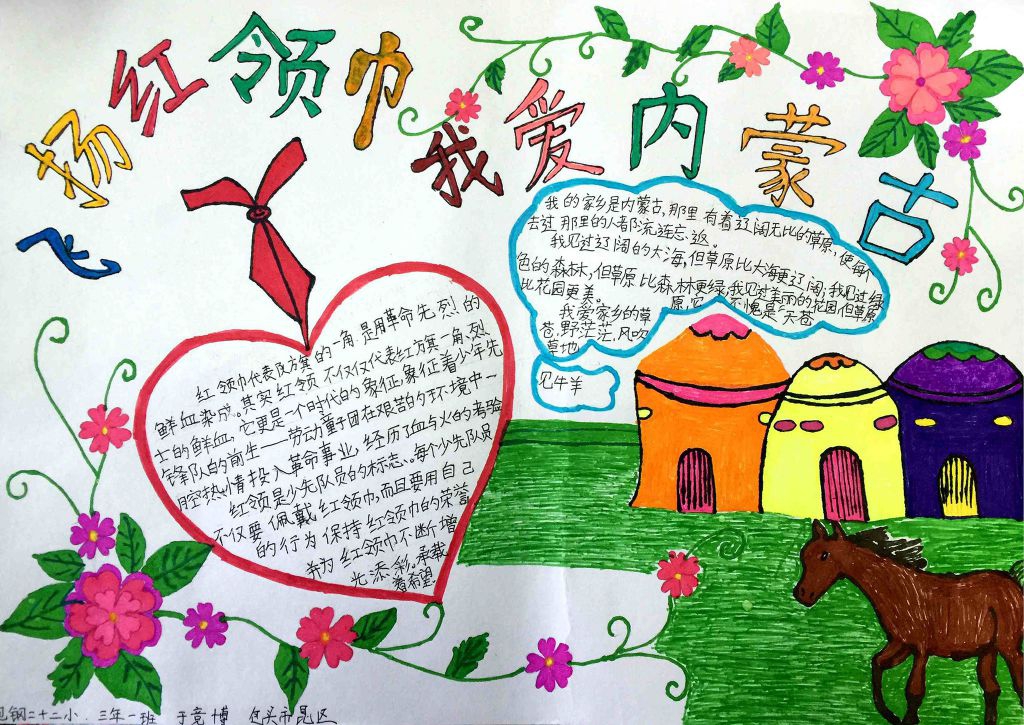 飞扬红领巾
我爱内蒙古
我的家乡是内蒙古,那里有着辽阔无比的草原,使每个
去过那里的人都流连忘返。
我见过辽阔的大海,但草原比大海更辽阔;我见过绿
色的森林,但草原比森林更绿;我见过美丽的花园,但草原
比花园更美。
我爱家乡的草原,它不愧是"天苍
苍,野茫茫,风吹
草地
见牛羊
红领巾代表队方旗的一角,是用革命先烈的
鲜血染成。其实红领不仅仅代表红方旗一角,烈
士的鲜血,它更是一个时代的象征,象征着少年先
锋队的前生——劳动童子团在艰苦的环境中一
腔热情投入革命事业,经历血与火的考验
红领是少先队员的标志。每个少先队员
不仅要佩戴红领巾,而且要用自己
的行为保持红领巾的荣誉
并为红领巾不断增
光添彩。承载
着希望
包钢二十二小.三年一班 于竞博 包头市昆区